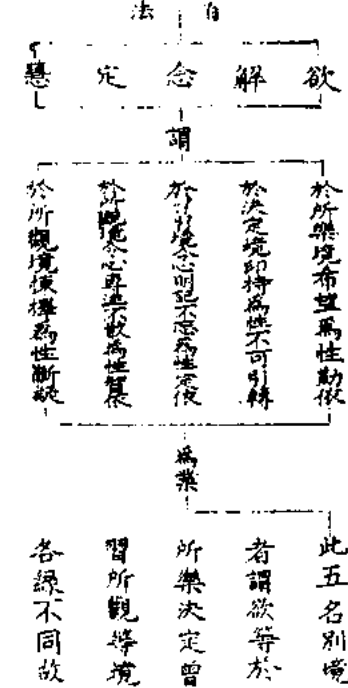 法
欲解念定慧
謂
於所樂境希望爲性勤依
於決定境印持爲性不可引轉
於曾習境令心明記不忘爲性定依
於所觀境令心專注不散爲性智依
於所觀境揀擇爲性斷疑
爲業
此五名別境
者謂欲等於
所樂決定曾
習所觀等境
各緣不同故